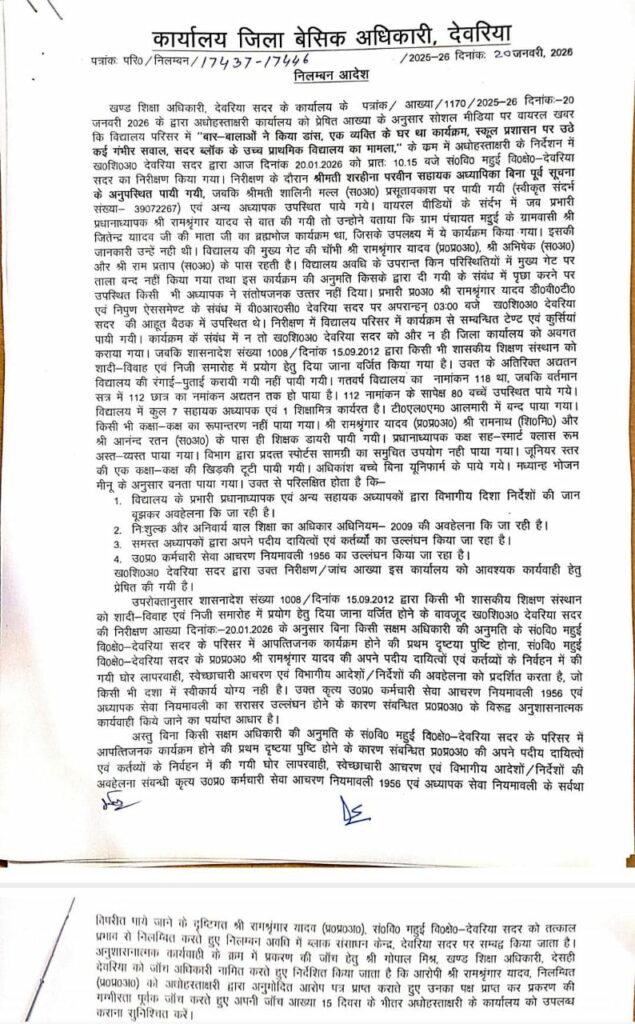 कार्यालय जिला बेसिक अधिकारी, देवरिया
पत्रांकः परि0/निलम्बन/17437-17446 /2025-26 दिनांकः 20जनवरी, 2026
निलम्बन आदेश
खण्ड शिक्षा अधिकारी, देवरिया सदर के कार्यालय के पत्रांक/ आख्या/1170/2025-26 दिनांकः-20
जनवरी 2026 के द्वारा अधोहस्ताक्षरी कार्यालय को प्रेषित आख्या के अनुसार सोशल मीडिया पर वायरल खबर
कि विद्यालय परिसर में "बार-बालाओं ने किया डांस, एक व्यक्ति के घर था कार्यक्रम, स्कूल प्रशासन पर उठे
कई गंभीर सवाल, सदर ब्लॉक के उच्च प्राथमिक विद्यालय का मामला," के क्रम में अधोहस्ताक्षरी के निर्देशन में
ख0शि0अ0 देवरिया सदर द्वारा आज दिनांक 20.01.2026 को प्रातः 10.15 बजे सं0वि0 महुई वि0क्षे0-देवरिया
सदर का निरीक्षण किया गया। निरीक्षण के दौरान श्रीमती शरहीना परवीन सहायक अध्यापिका बिना पूर्व सूचना
के अनुपस्थित पायी गयी, जबकि श्रीमती शालिनी मल्ल (स0अ0) प्रसूतावकाश पर पायी गयी (स्वीकृत संदर्भ
संख्या- 39072267) एवं अन्य अध्यापक उपस्थित पाये गये। वायरल वीडियों के संर्दभ में जब प्रभारी
प्रधानाध्यापक श्री रामश्रृंगार यादव से बात की गयी तो उन्होने बताया कि ग्राम पंचायत महुई के ग्रामवासी श्री
जितेन्द्र याादव जी की माता जी का ब्रह्मभोज कार्यक्रम था, जिसके उपलक्ष्य में ये कार्यक्रम किया गया। इसकी
जानकारी उन्हें नही थी। विद्यालय की मुख्य गेट की चॉभी श्री रामश्रृंगार यादव (प्र0प्र0अ0), श्री अभिषेक (स0अ0)
और श्री राम प्रताप (स0अ0) के पास रहती है। विद्यालय अवधि के उपरान्त किन परिस्थितियों में मुख्य गेट पर
ताला बन्द नहीं किया गया तथा इस कार्यक्रम की अनुमति किसके द्वारा दी गयी के संबंध में पृछा करने पर
उपस्थित किसी भी अध्यापक ने संतोषजनक उत्तर नहीं दिया। प्रभारी प्र0अ0 श्री रामश्रृंगार यादव डी0बी0टी0
एवं निपुण ऐससमेण्ट के संबंध में बी0आर0सी0 देवरिया सदर पर अपरान्हन् 03:00 बजे ख0शि0अ0 देवरिया
सदर की आहूत बैठक में उपस्थित थे। निरीक्षण में विद्यालय परिसर में कार्यक्रम से सम्बन्धित टेण्ट एवं कुर्सियां
पायी गयी। कार्यक्रम कें संबंध में न तो ख0शि0अ0 देवरिया सदर को और न ही जिला कार्यालय को अवगत
कराया गया। जबकि शासनादेश संख्या 1008/दिनांक 15.09.2012 द्वारा किसी भी शासकीय शिक्षण संस्थान को
शादी-विवाह एवं निजी समारोह में प्रयोग हेतु दिया जाना वर्जित किया गया है। उक्त के अतिरिक्त अद्यतन
विद्यालय की रंगाई-पुताई करायी गयी नहीं पायी गयी। गतवर्ष विद्यालय का नामांकन 118 था, जबकि वर्तमान
सत्र में 112 छात्र का नमांकन अद्यतन तक हो पाया है। 112 नामांकन के सापेक्ष 80 बच्चें उपस्थित पाये गये।
विद्यालय में कुल 7 सहायक अध्यापक एवं 1 शिक्षामित्र कार्यरत है। टी0एल0एम0 आलमारी में बन्द पाया गया।
किसी भी कक्षा-कक्ष का रूपान्तरण नहीं पाया गया। श्री रामश्रृंगार यादव (प्र0प्र0अ0) श्री रामनाथ (शि0मि0) और
श्री आनंद रतन (स0अ0) के पास ही शिक्षक डायरी पायी गयी। प्रधानाध्यापक कक्ष सह-स्मार्ट क्लास रूम
अस्त-व्यस्त पाया गया। विभाग द्वारा प्रदत्त स्पोर्टस सामग्रा का समुचित उपयोग नही पाया गया। जूनियर स्तर
की एक कक्षा-कक्ष की खिड़की टूटी पायी गयी। अधिकांश बच्चे बिना यूनिफार्म के पाये गये। मध्यान्ह भोजन
मीनू के अनुसार बनता पाया गया। उक्त से परिलक्षित होता है कि-
1. विद्यालय के प्रभारी प्रधानाध्यापक एवं अन्य सहायक अध्यापकों द्वारा विभागीय दिशा निर्देशों की जान
बूझकर अवहेलना कि जा रही है।
2. निःशुल्क और अनिवार्य बाल शिक्षा का अधिकार अधिनियम- 2009 की अवहेलना कि जा रही है।
3. समस्त अध्यापकों द्वारा अपने पदीय दायित्वों एवं कर्तर्ब्यो का उल्लंघन किया जा रहा है।
4. उ0प्र0 कर्मचारी सेवा आचरण नियमावली 1956 का उल्लंघन किया जा रहा है।
ख0शि0अ0 देवरिया सदर द्वारा उक्त निरीक्षण/जांच आख्या इस कार्यालय को आवश्यक कार्यवाही हेतु
प्रेषित की गयी है।
उपरोक्तानुसार शासनादेश संख्या 1008/दिनांक 15.09.2012 द्वारा किसी भी शासकीय शिक्षण संस्थान
को शादी-विवाह एवं निजी समारोह में प्रयोग हेतु दिया जाना वर्जित होने के बावजूद ख0शि0अ0 देवरिया सदर
की निरीक्षण आख्या दिनांकः-20.01.2026 के अनुसार बिना किसी सक्षम अधिकारी की अनुमति के सं0वि0 महुई
वि0क्षे0-देवरिया सदर के परिसर में आपत्तिजनक कार्यक्रम होने की प्रथम दृष्टया पुष्टि होना, सं0वि0 महुई
वि0क्षे0-देवरिया सदर के प्र0प्र0अ0 श्री रामश्रृंगार यादव की अपने पदीय दायित्वों एवं कर्तव्यों के निर्वहन में की
गयी घोर लापरवाही, स्वेच्छाचारी आचरण एवं विभागीय आदेशों/निर्देशों की अवहेलना को प्रदर्शित करता है, जो
किसी भी दशा में स्वीकार्य योग्य नही है। उक्त कृत्य उ0प्र0 कर्मचारी सेवा आचरण नियमावली 1956 एवं
अध्यापक सेवा नियमावली का सरासर उल्लंघन होने के कारण संबन्धित प्र0प्र0अ0 के विरूद्व अनुशासनात्मक
कार्यवाही किये जाने का पर्याप्त आधार है।
अस्तु बिना किसी सक्षम अधिकारी की अनुमति के सं0वि0 महुई वि0क्षे0-देवरिया सदर के परिसर में
आपत्तिजनक कार्यक्रम होने की प्रथम दृष्टया पुष्टि होने के कारण संबन्धित प्र0प्र0अ0 की अपने पदीय दायित्वों
एवं कर्तव्यों के निर्वहन में की गयी घोर लापरवाही, स्वेच्छाचारी आचरण एवं विभागीय आदेशों/निर्देशों की
अवहेलना संबन्धी कृत्य उ0प्र0 कर्मचारी सेवा आचरण नियमावली 1956 एवं अध्यापक सेवा नियमावली के सर्वथा
विपरीत पाये जाने के दृष्टिगत श्री रामश्रृंगार यादव (प्र0प्र0अ0), सं0वि0 महुई वि0क्षे0-देवरिया सदर को तत्काल
प्रभाव से निलम्बित करते हुए निलम्बन अवधि में ब्लाक संसाधन केन्द्र, देवरिया सदर पर सम्बद्व किया जाता है।
अनुशासनात्मक कार्यवाही के क्रम में प्रकरण की जॉच हेतु श्री गोपाल मिश्र, खण्ड शिक्षा अधिकारी, देसही
देवरिया को जॉच अधिकारी नामित करते हुए निर्देशित किया जाता है कि आरोपी श्री रामश्रृंगार यादव, निलम्बित
(प्र0प्र0अ0) को अधोहस्ताक्षरी द्वारा अनुमोदित आरोप पत्र प्राप्त कराते हुए उनका पक्ष प्राप्त कर प्रकरण की
गम्भीरता पूर्वक जॉच करते हुए अपनी जॉच आख्या 15 दिवस के भीतर अधोहस्ताक्षरी के कार्यालय को उपलब्ध
कराना सुनिश्चित करें।